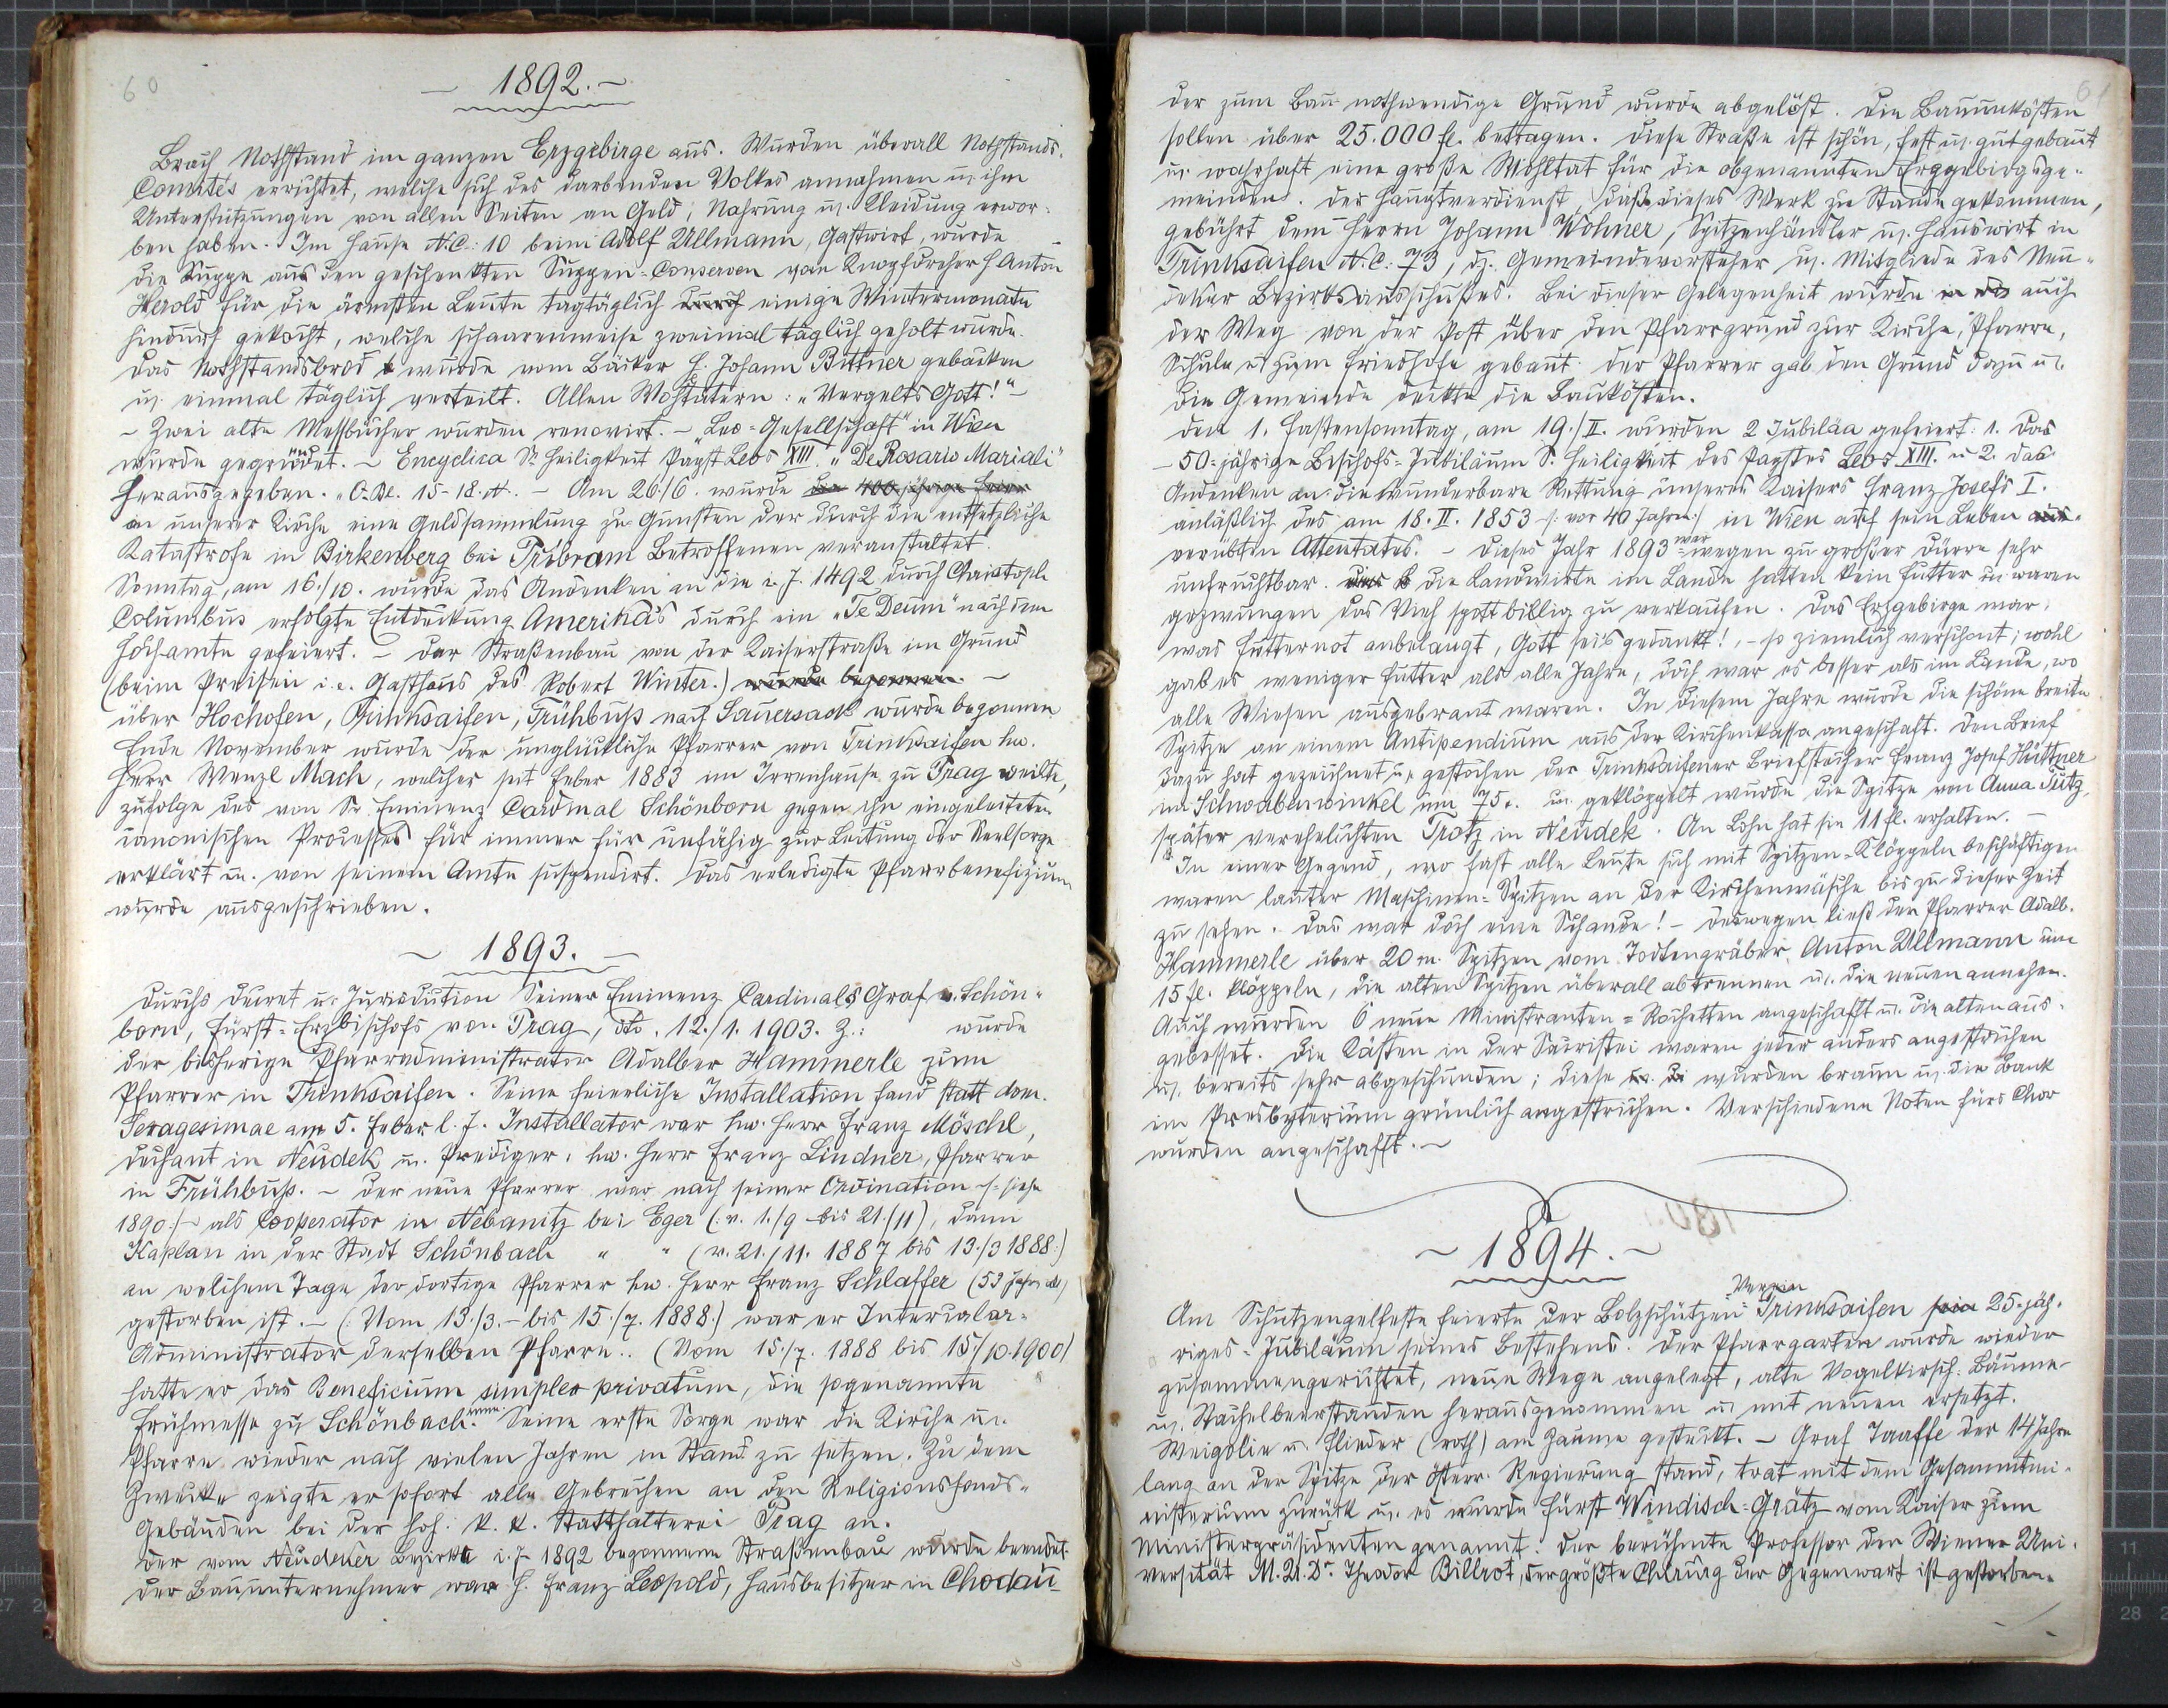 60
– 1892. –
Brach Nothstand im ganzen Erzgebirge aus. Wurden überall Nothstands-
Comités errichtet, welche sich des darbenden Volkes annahmen u. ihm
Unterstützungen von allen Seiten an Geld, Nahrung u. Kleidung erwor-
ben haben. Im Hause N.C. 10 beim Adolf Ullmann, Gastwirt, wurde
die Suppe aus den geschenkten Suppen-Conserven vom Knopfdreher H. Anton
Herold für die ärmsten Leute tagtäglich durch einige Wintermonate
hindurch gekocht, welche schaarenweise zweimal täglich geholt wurde.
Das Nothstandsbrod wurde vom Bäcker H. Johann Bittner gebacken
u. einmal täglich verteilt. Allen Wohltätern: „Vergelts Gott!" –
– Zwei alte Messbücher wurden renovirt. – „Leo-Gesellschaft" in Wien
wurde gegründet. – Encyclica Sr. Heiligkeit Papst Leos XIII. „De Rosario Mariali"
herausgegeben. O.-Bl. 15-18. N. – Am 26./6. wurde die 400 jährige Feier
in unserer Kirche eine Geldsammlung zu Gunsten der durch die entsetzliche
Katastrofe in Birkenberg bei Přibram Betroffenen veranstaltet.
Sonntag, am 16./10. wurde das Andenken an die i. J. 1492 durch Christoph
Columbus erfolgte Entdeckung Amerika's durch ein „Te Deum" nach dem
Hochamte gefeiert. – Der Straßenbau von der Kaiserstraße im Grund
(beim Preisen i.e. Gasthaus des Robert Winter.) wurde begonnen. –
über Hochofen, Trinksaifen, Frühbuß nach Sauersack wurde begonnen
Ende November wurde der unglückliche Pfarrer von Trinksaifen hw.
Herr Wenzl Mach, welcher seit Feber 1883 im Irrenhause zu Prag weilte,
zufolge des von Sr. Eminenz Cardinal Schönborn gegen ihn eingeleiteten
canonischen Processes für immer für unfähig zur Leitung der Seelsorge
erklärt u. von seinem Amte suspendirt. Das erledigte Pfarrbenefizium
wurde ausgeschrieben.
– 1893. –
Durchs Decret u. Jurisdiction Seiner Eminenz Cardinals Graf v. Schön-
born, Fürst-Erzbischofs von Prag, dto. 12./1. 1903. Z.: wurde
der bisherige Pfarradministrator Adalber Hammerle zum
Pfarrer in Trinksaifen. Seine feierliche Installation fand statt dom.
Sexagesimae am 5. Feber l. J. Installator war hw. Herr Franz Möschl,
Dechant in Neudek u. Prediger: hw. Herr Franz Lindner, Pfarrer
in Frühbuß. – Der neue Pfarrer war nach seiner Ordination /: siehe
1890 :/ als Cooperator in Nebanitz bei Eger (: v. 1./9 – bis 21./11), dann
Kaplan in der Stadt Schönbach " " (v. 21./11. 1887 bis 13./3 1888:)
an welchem Tage der dortige Pfarrer hw. Herr Franz Schlaffer (53 Jahre alt)
gestorben ist. – (: Vom 13./3. – bis 15./7. 1888:) war er Intercalar-
Administrator derselben Pfarre.. (Vom 15./7. 1888 bis 15./10. 1900)
hatte er das Beneficium simplex privatum, die sogenannte
Frühmesse zu Schönbach inne. Seine erste Sorge war die Kirche u.
Pfarre wieder nach vielen Jahren in Stand zu setzen. Zu dem
Zwecke zeigte er sofort alle Gebrechen an den Religionsfonds-
Gebäuden bei der hoh. k. k. Statthalterei Prag an.
Der vom Neudeker Bezirke i. J. 1892 begonnene Straßenbau wurde beendet.
Der Bauunternehmer war H. Franz Leopold, Hausbesitzer in Chodau –
61
der zum Bau nothwendige Grund wurde abgelöst. Die Bauunkosten
sollen über 25.000 fl. betragen. Diese Straße ist schön, fest u. gut gebaut
u. wahrhaft eine große Wohltat für die obgenannten Erzgebirgsge-
meinden. Der Hauptverdienst, daß dieses Werk zu Stande gekommen,
gebührt dem Herrn Johann Wohner, Spitzenhändler u. Hauswirt in
Trinksaifen N.C. 73, dz. Gemeindevorsteher u. Mitgliede des Neu-
deker Bezirksausschußes. Bei dieser Gelegenheit wurde auch
der Weg von der Post über den Pfarrgrund zur Kirche, Pfarre,
Schule u. zum Friedhofe gebaut. Der Pfarrer gab den Grund dazu u.
die Gemeinde deckte die Baukosten.
Den 1. Fastensonntag, am 19./II. wurden 2 Jubiläa gefeiert: 1. Das
– 50-jährige Bischofs-Jubiläum S. Heiligkeit des Papstes Leos XIII. u. 2. das
Andenken an die wunderbare Rettung unseres Kaisers Franz Josefs I.
anläßlich des am 18. II. 1853 /: vor 40 Jahren :/ in Wien auf sein Leben aus-
verübten Attentates. – Dieses Jahr 1893 war wegen zu großer Dürre sehr
unfruchtbar. Die Landwirte im Lande hatten kein Futter u. waren
gezwungen das Vieh spottbillig zu verkaufen. Das Erzgebirge war,
was Futternot anbelangt, Gott sei's gedankt!, – so ziemlich verschont; wohl
gab es weniger Futter als alle Jahre, doch war es besser als im Lande, wo
alle Wiesen ausgebrant waren. In diesem Jahre wurde die schöne breite
Spitze an einem Antipendium aus der Kirchenkassa angeschaft. Den Brief
dazu hat gezeichnet u. gestochen der Trinksaifener Briefstecher Franz Josef Hüttner
im Schwabenwinkel um 75 c. u. geklöppelt wurde die Spitze von Anna Tütz,
später verehelichten Trotz in Neudek. An Lohn hat sie 11 fl. erhalten. –
In einer Gegend, wo fast alle Leute sich mit Spitzen-Klöppeln beschäftigen
waren lauter Maschinen-Spitzen an der Kirchenwäsche bis zu dieser Zeit
zu sehen. Das war doch eine Schande! – Deswegen ließ der Pfarrer Adalb.
Hammerle über 20 m. Spitzen vom Todtengräber Anton Ullmann um
15 fl. klöppeln, die alten Spitzen überall abtrennen u. die neuen annehen.
Auch wurden 6 neue Ministranten-Rochetten angeschafft u. die alten aus-
gebessert. Die Kästen in der Sacristei waren jeder anders angestrichen
u. bereits sehr abgeschunden; diese wurden braun u. die Bank
im Presbyterium grünlich angestrichen. Verschiedene Noten fürs Chor
wurden angeschafft. –
– 1894. –
Am Schutzengelfeste feierte der Bolzschützen-Verein Trinksaifen sein 25-jäh-
riges-Jubiläum seines Bestehens. Der Pfarrgarten wurde wieder
zusammengerichtet, neue Wege angelegt, alte Vogelkirsch-Bäume
u. Stachelbeerstauden herausgenommen u. mit neuen ersetzt.
Weigolie u. Flieder (roth) am Zaune gesteckt. – Graf Taaffe der 14 Jahre
lang an der Spitze der österr. Regierung stand, trat mit dem Gesammtmi-
nisterium zurück u. es wurde Fürst Windisch-Grätz vom Kaiser zum
Ministerpräsidenten genannt. Der berühmte Professor der Wiener Uni-
versität M. U. Dr. Theodor Billrot, der größte Chirurg der Gegenwart ist gestorben.